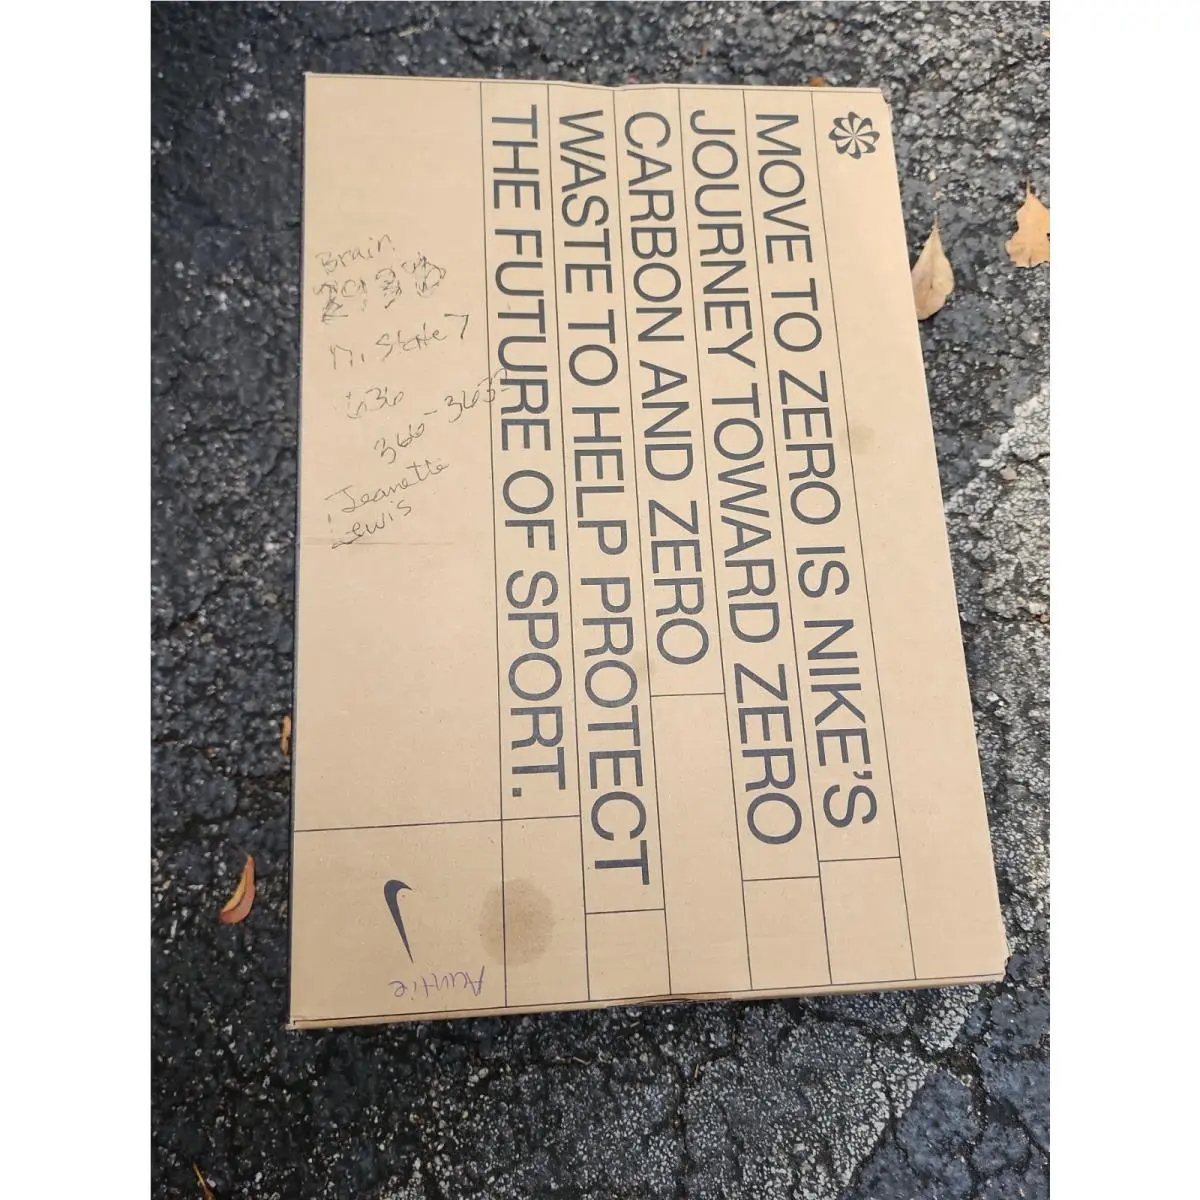 MOVE TO ZERO IS NIKE'S
JOURNEY TOWARD ZERO
CARBON AND ZERO
WASTE TO HELP PROTECT
THE FUTURE OF SPORT.
Brain
N. State 7
636
366-3633
Jeanette
Lewis
Auntie